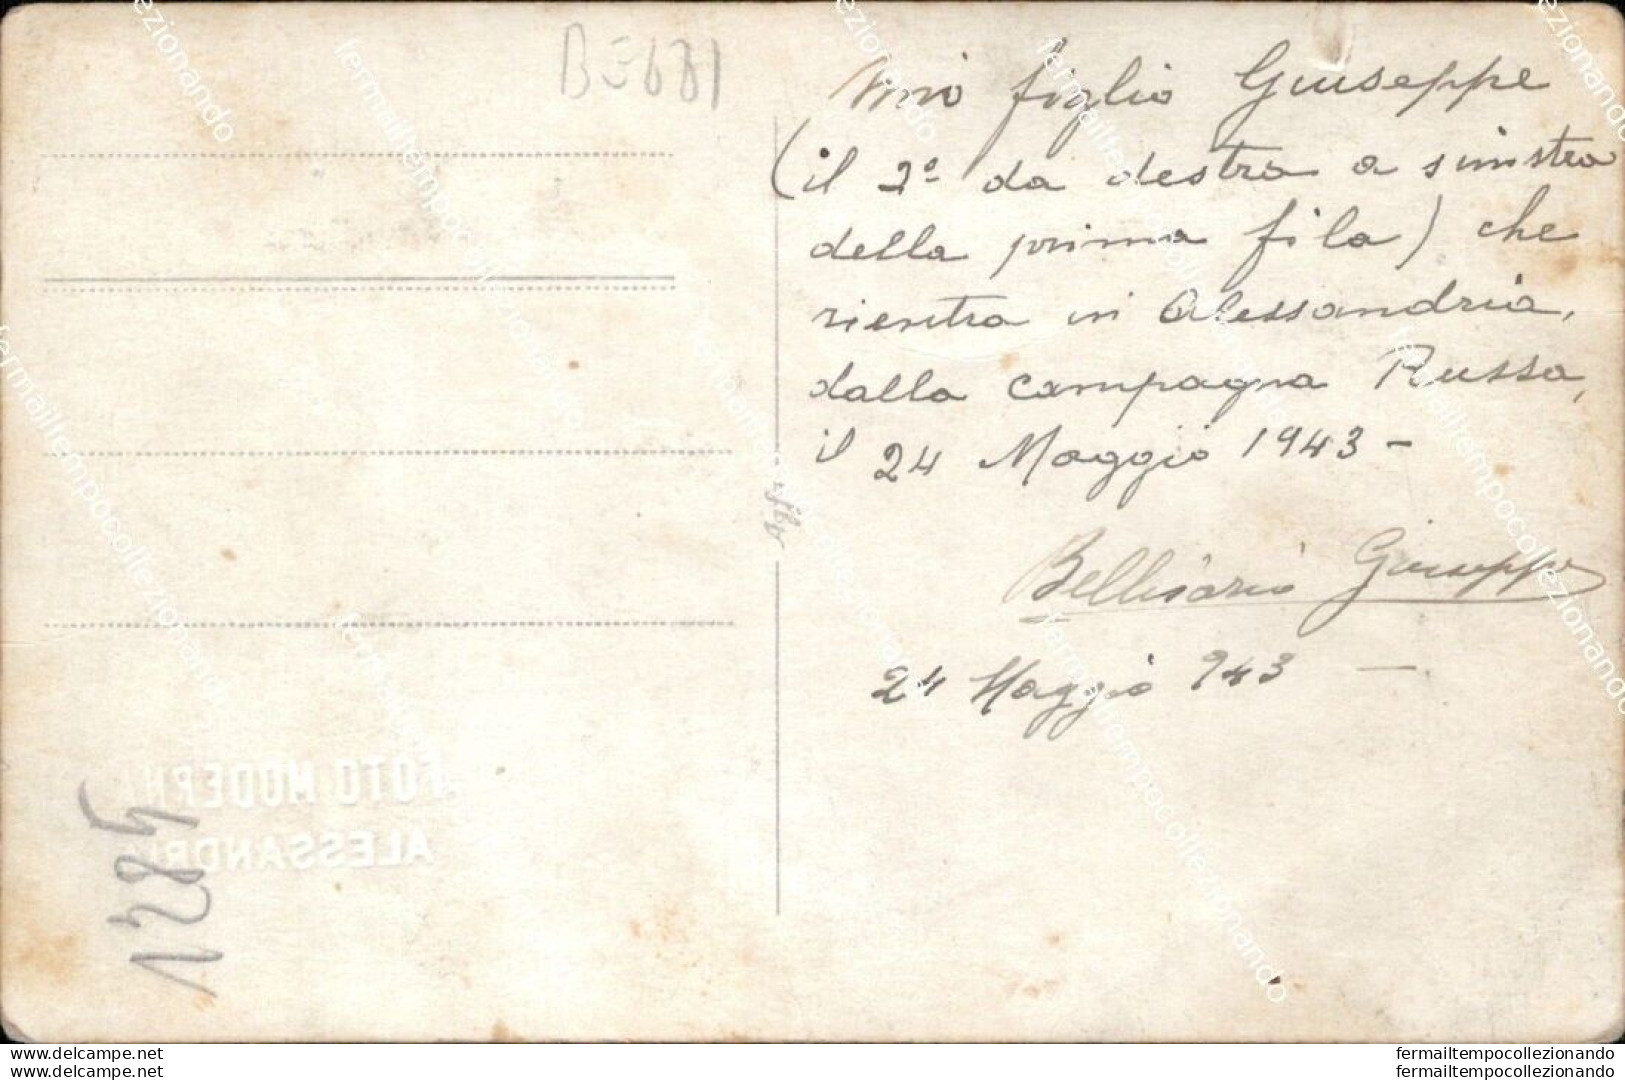 BE681
mio figlio Giuseppe
(il 2º da destra a sinistra
della prima fila) che
rientra in Alessandria,
dalla campagna Russa,
il 24 Maggio 1943 -
Bellisario Giuseppe
24 Maggio 943 —
FOTO MODERN
ALESSANDRI
www.delcampe.net
fermailtempocollezionando
www.delcampe.net
fermailtempocollezionando